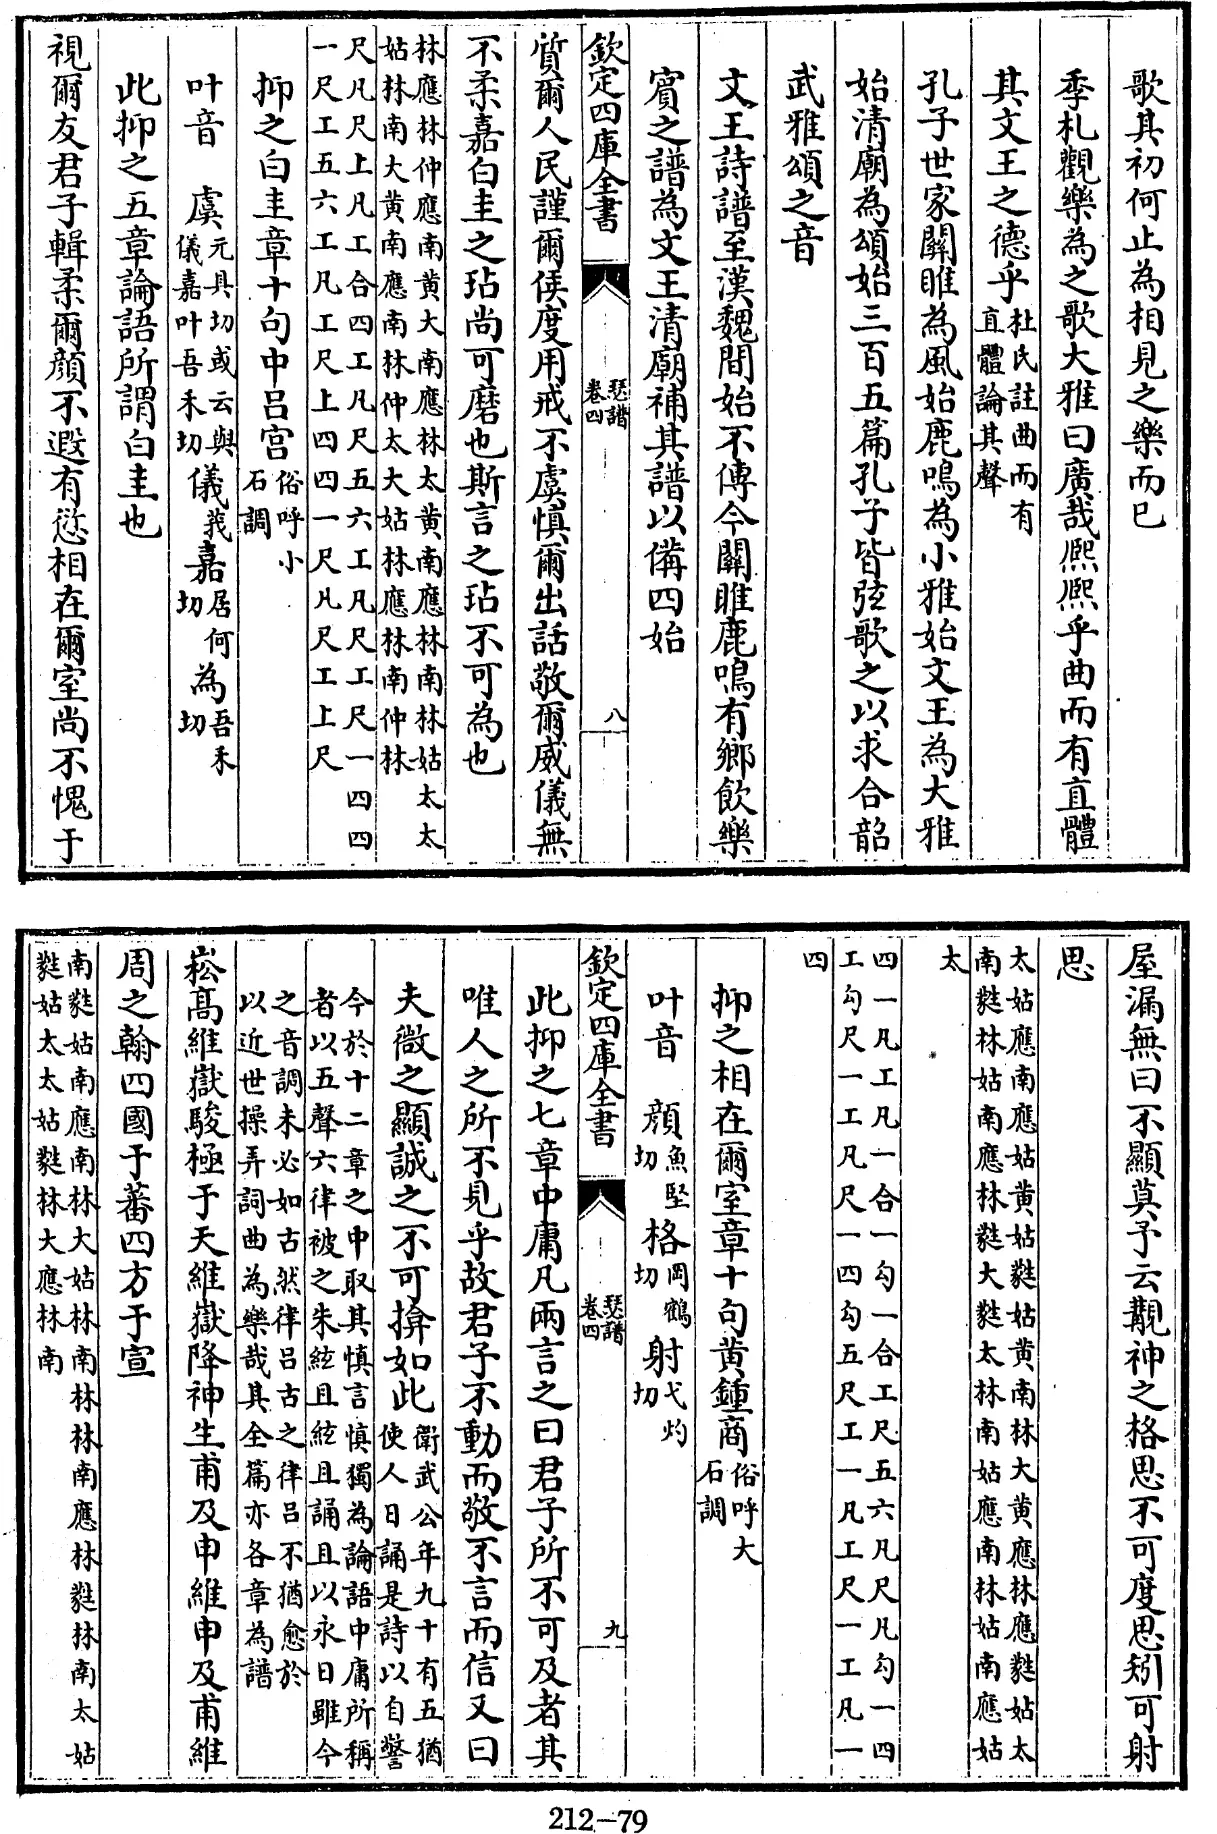 歌其初何止為相見之樂而已
季札觀樂為之歌大雅曰廣哉熙熙乎曲而有直體
其文王之德乎杜氏註曲而有直體論其聲
孔子世家關雎為風始鹿鳴為小雅始文王為大雅
始清廟為頌始三百五篇孔子皆弦歌之以求合韶
武雅頌之音
文王詩譜至漢魏間始不傳今關雎鹿鳴有鄉飲樂
賓之譜為文王清廟補其譜以備四始
欽定四庫全書
瑟譜
卷四
八
質爾人民謹爾侯度用戒不虞慎爾出話敬爾威儀無
不柔嘉白圭之玷尚可磨也斯言之玷不可為也
林應林仲應南黃大南應林太黃南應林南林姑太太
姑林南大黃南應南林仲太大姑林應林南仲林
尺凡尺上凡工合四工凡尺五六工凡尺工尺一四四
一尺工五六工凡工尺上四四一尺凡尺工上尺
抑之白圭章十句中呂宮俗呼小石調
叶音 虞元具切或云與儀嘉叶吾禾切儀莪嘉居何切為吾禾切
此抑之五章論語所謂白圭也
視爾友君子輯柔爾顏不遐有愆相在爾室尚不愧于
屋漏無曰不顯莫予云覯神之格思不可度思矧可射
思
太姑應南應姑黃姑蕤姑黃南林大黃應林應蕤姑太
南蕤林姑南應林蕤大蕤太林南姑應南林姑南應姑
太
四一凡工凡一合一勾一合工尺五六凡尺凡勾一四
工勾尺一工凡尺一四勾五尺工一凡工尺一工凡一
四
抑之相在爾室章十句黃鍾商俗呼大石調
叶音 顏魚堅切格岡鶴切射弋灼切
欽定四庫全書
瑟譜
卷四
九
此抑之七章中庸凡兩言之曰君子所不可及者其
唯人之所不見乎故君子不動而敬不言而信又曰
夫微之顯誠之不可揜如此衛武公年九十有五猶使人日誦是詩以自警
今於十二章之中取其慎言慎獨為論語中庸所稱
者以五聲六律被之朱絃且絃且誦且以永日雖今
之音調未必如古然律呂古之律呂不猶愈於
以近世操弄詞曲為樂哉其全篇亦各章為譜
崧高維嶽駿極于天維嶽降神生甫及申維申及甫維
周之翰四國于蕃四方于宣
南蕤姑南應南林大姑林南林林南應林蕤林南太姑
蕤姑太太姑蕤林大應林南
212-79